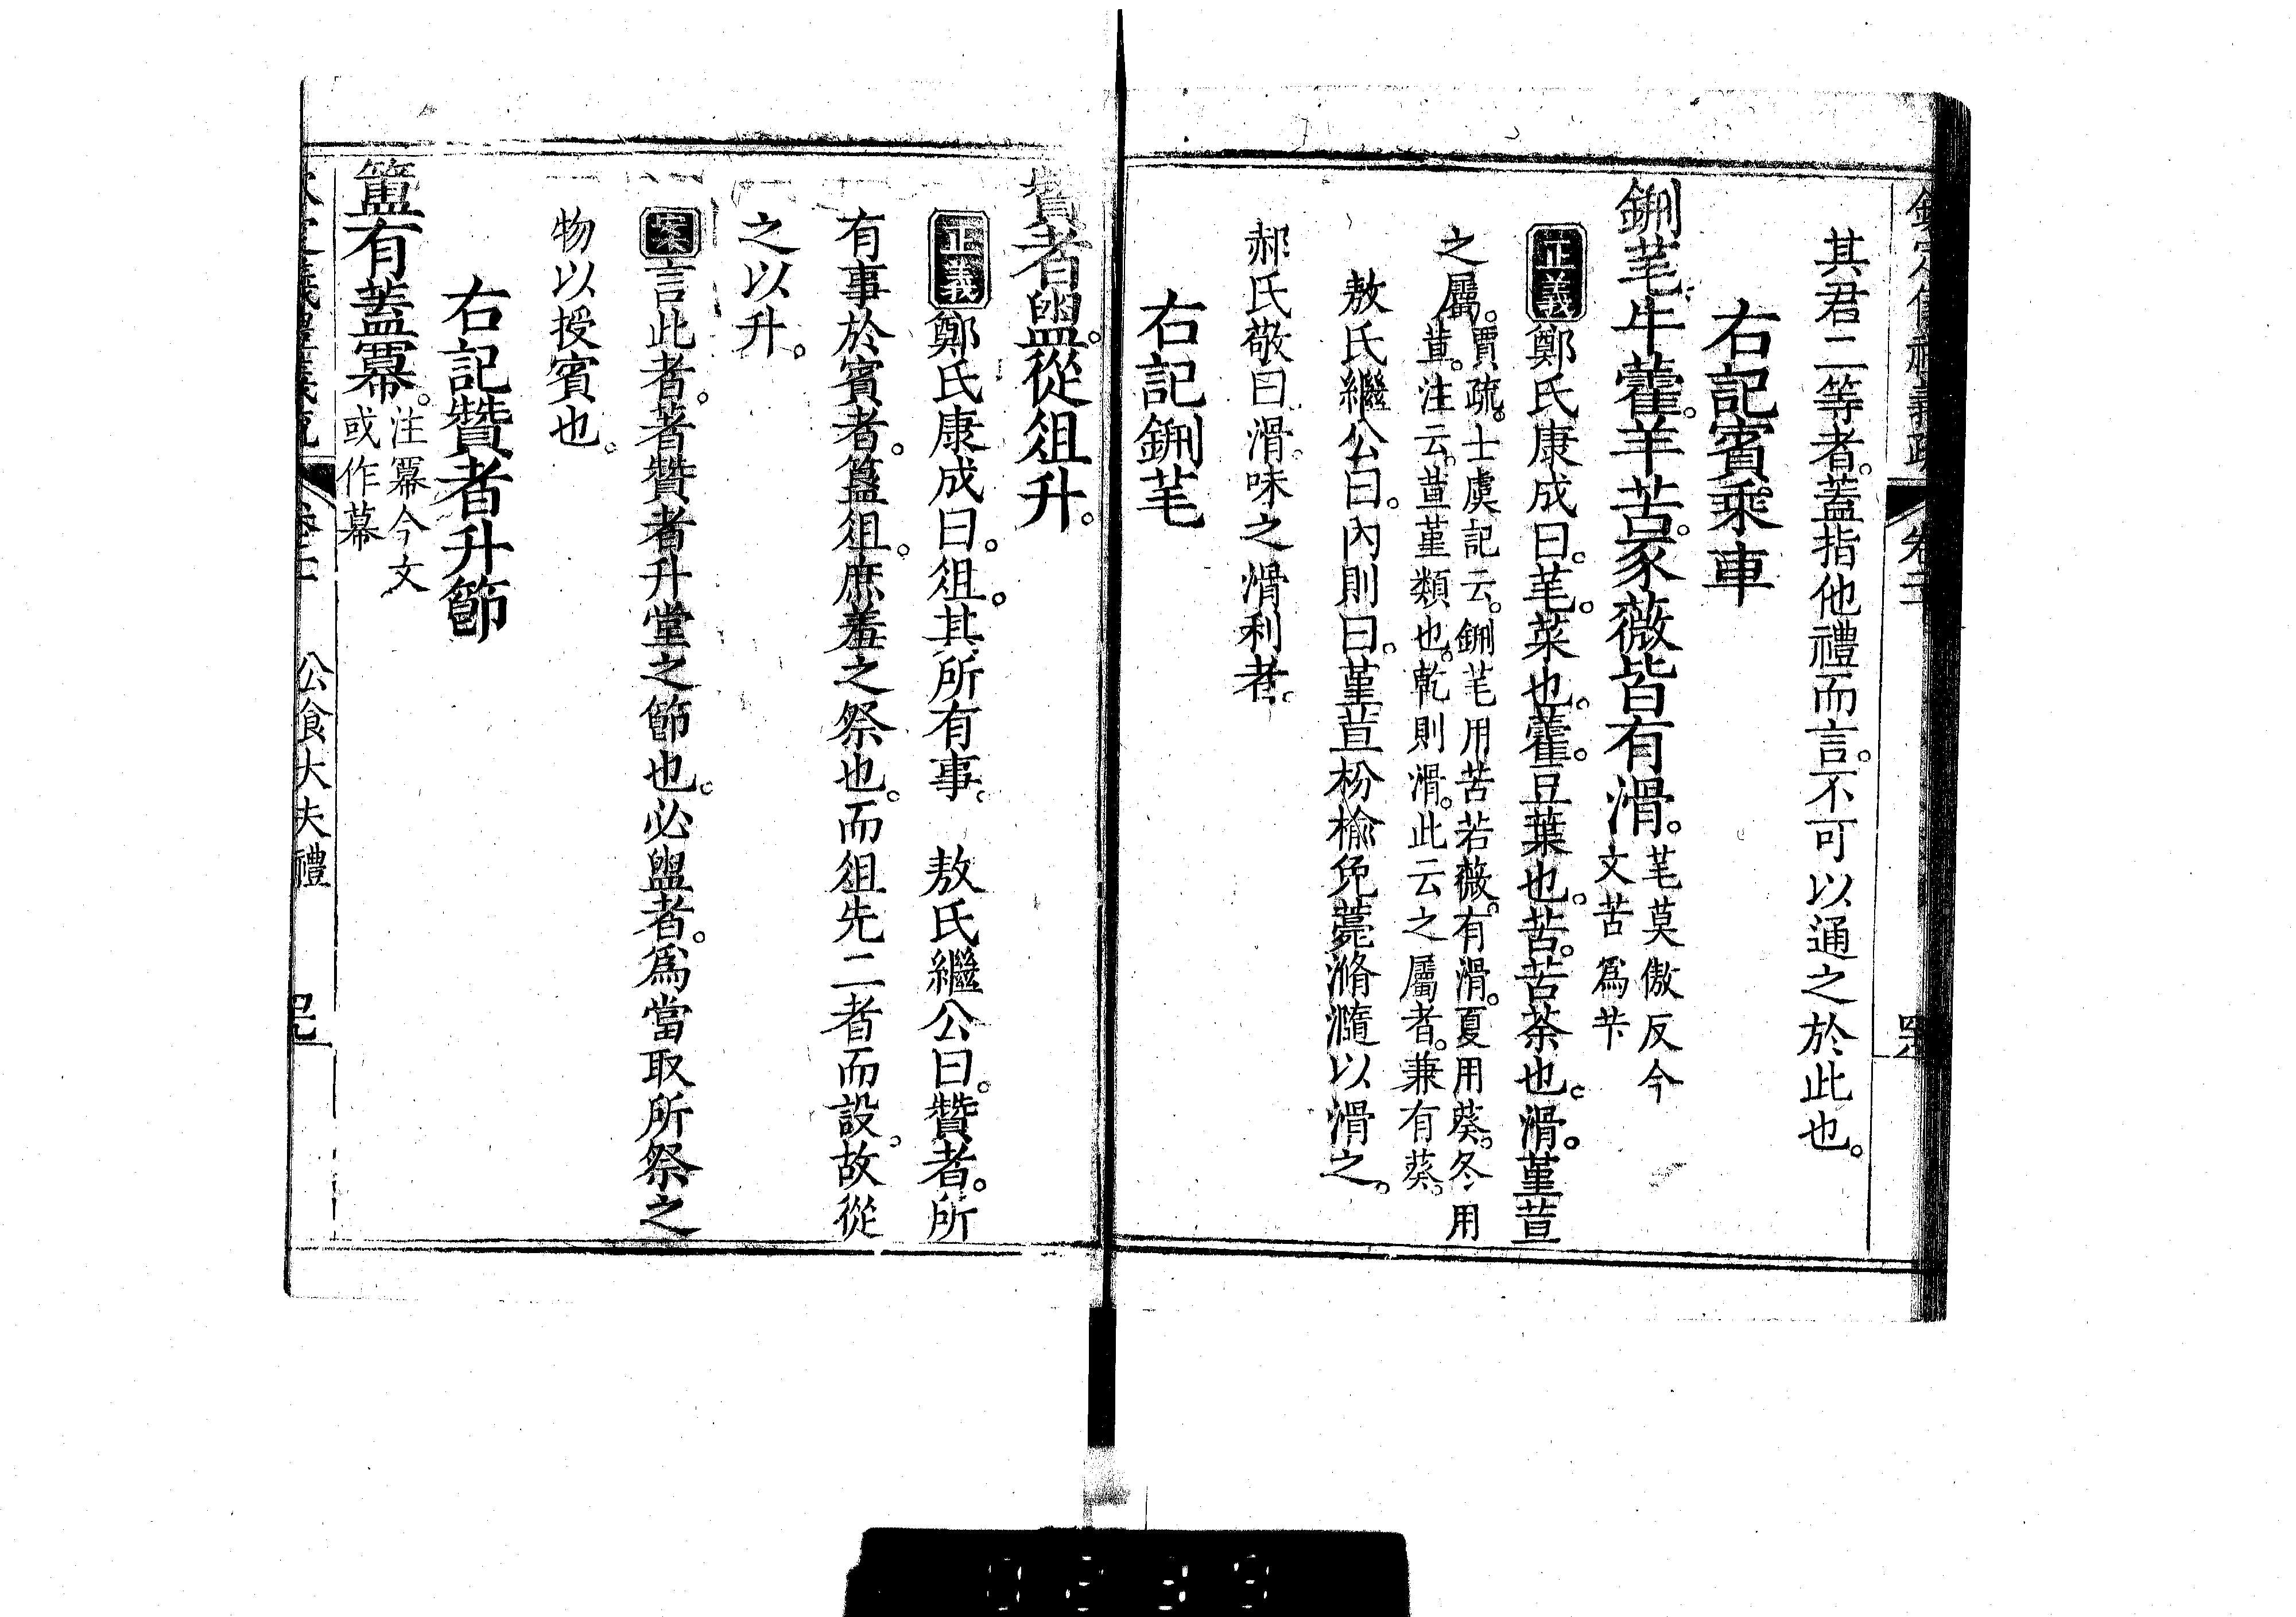 欽定儀禮義疏 卷二
其君二等者。蓋指他禮而言。不可以通之於此也。
右記賓乘車
鉶芼牛藿。羊苦。豕薇皆有滑。芼莫傲反今
文苦爲芐
正義鄭氏康成曰。芼。菜也。藿。豆葉也。苦。苦荼也。滑。堇荁
之屬。賈疏。士虞記云。鉶芼用苦若薇。有滑。夏用葵。冬用
荁。注云。荁堇類也。乾則滑。此云之屬者。兼有葵。
敖氏繼公曰。內則曰。堇荁枌榆免薧滫瀡以滑之。
郝氏敬曰。滑。味之滑利者。
右記鉶芼
贊者盥。從俎升。
正義鄭氏康成曰。俎。其所有事。 敖氏繼公曰。贊者。所
有事於賓者。簋俎。庶羞之祭也。而俎先二者而設。故從
之以升。
案言此者。著贊者升堂之節也。必盥者。爲當取所祭之
物以授賓也。
右記贊者升節
簠有蓋冪。注冪今文
或作幕
公食大夫禮